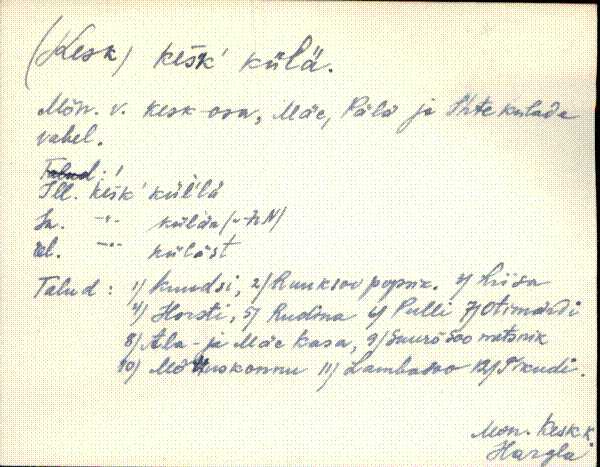 (Kesk) kešk' külä.
Mõn. v. kesk-osa, Mäe, Pälä ja Ihte kulade
vahel.
Talud:
Ill. kešk' küllä
In. -"- külän (~-hN)
el. -"- küläst
Talud: 1) Kuudsi, 2) Ruuksoo popsik. 3) Liisa
4) Horsti, 5) Rudina 6) Pulli 7) Otimardi
8) Ala- ja Mäe Kasa, 9) Suurõsoo matsnik
10) Mõtuskonnu 11) Lambasoo 12) Prkudi.
Mõn. Kesk k.
Hargla